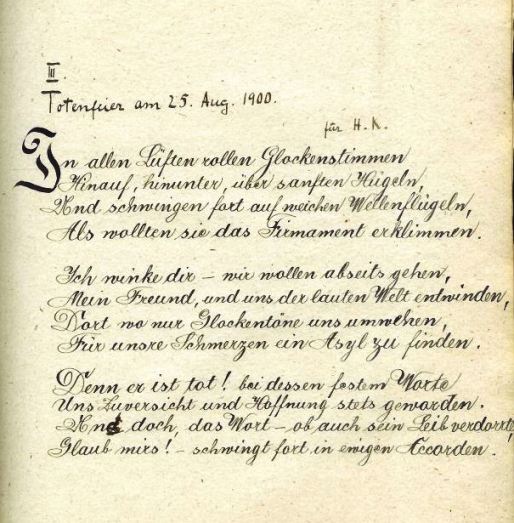 III.
Totenfeier am 25. Aug. 1900.
für H. K.
In allen Lüften rollen Glockenstimmen
Hinauf, hinunter, über sanften Hügeln
Und schwingen fort auf weichen Wellenflügeln,
Als wollten sie das Firmament erklimmen.
Ich winke dir – wir wollen abseits gehen,
Mein Freund, und uns der lauten Welt entwinden,
Dort wo nur Glockentöne uns umwehen,
Für unsre Schmerzen ein Asyl zu finden.
Denn er ist tot! bei dessen festem Worte
Uns Zuversicht und Hoffnung stets geworden.
Und doch, das Wort – ob auch sein Leib verdorrte,
Glaub mirs! – schwingt fort in ewigen Accorden.